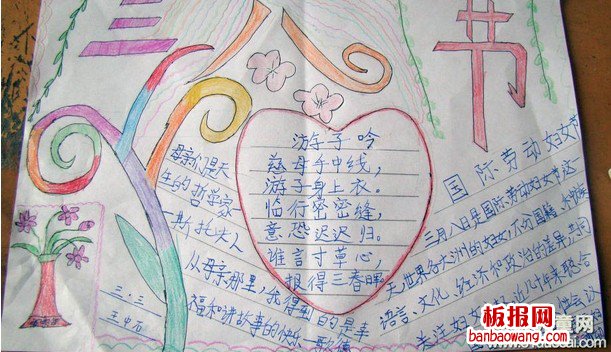 三八节
游子吟
慈母手中线，
游子身上衣。
临行密密缝，
意恐迟迟归。
谁言寸草心，
报得三春晖
母亲们是天
生的哲学家
斯托夫人
从母亲那里，我得到的是幸
福和讲故事的快乐
歌德
三.三
国际劳动妇女节
三月八日是国际劳动妇女节这一
天，世界各大洲的妇女，不分国籍、
语言、文化、经济和政治的差异，共同
关注妇女的
板报网
banbaowang.com